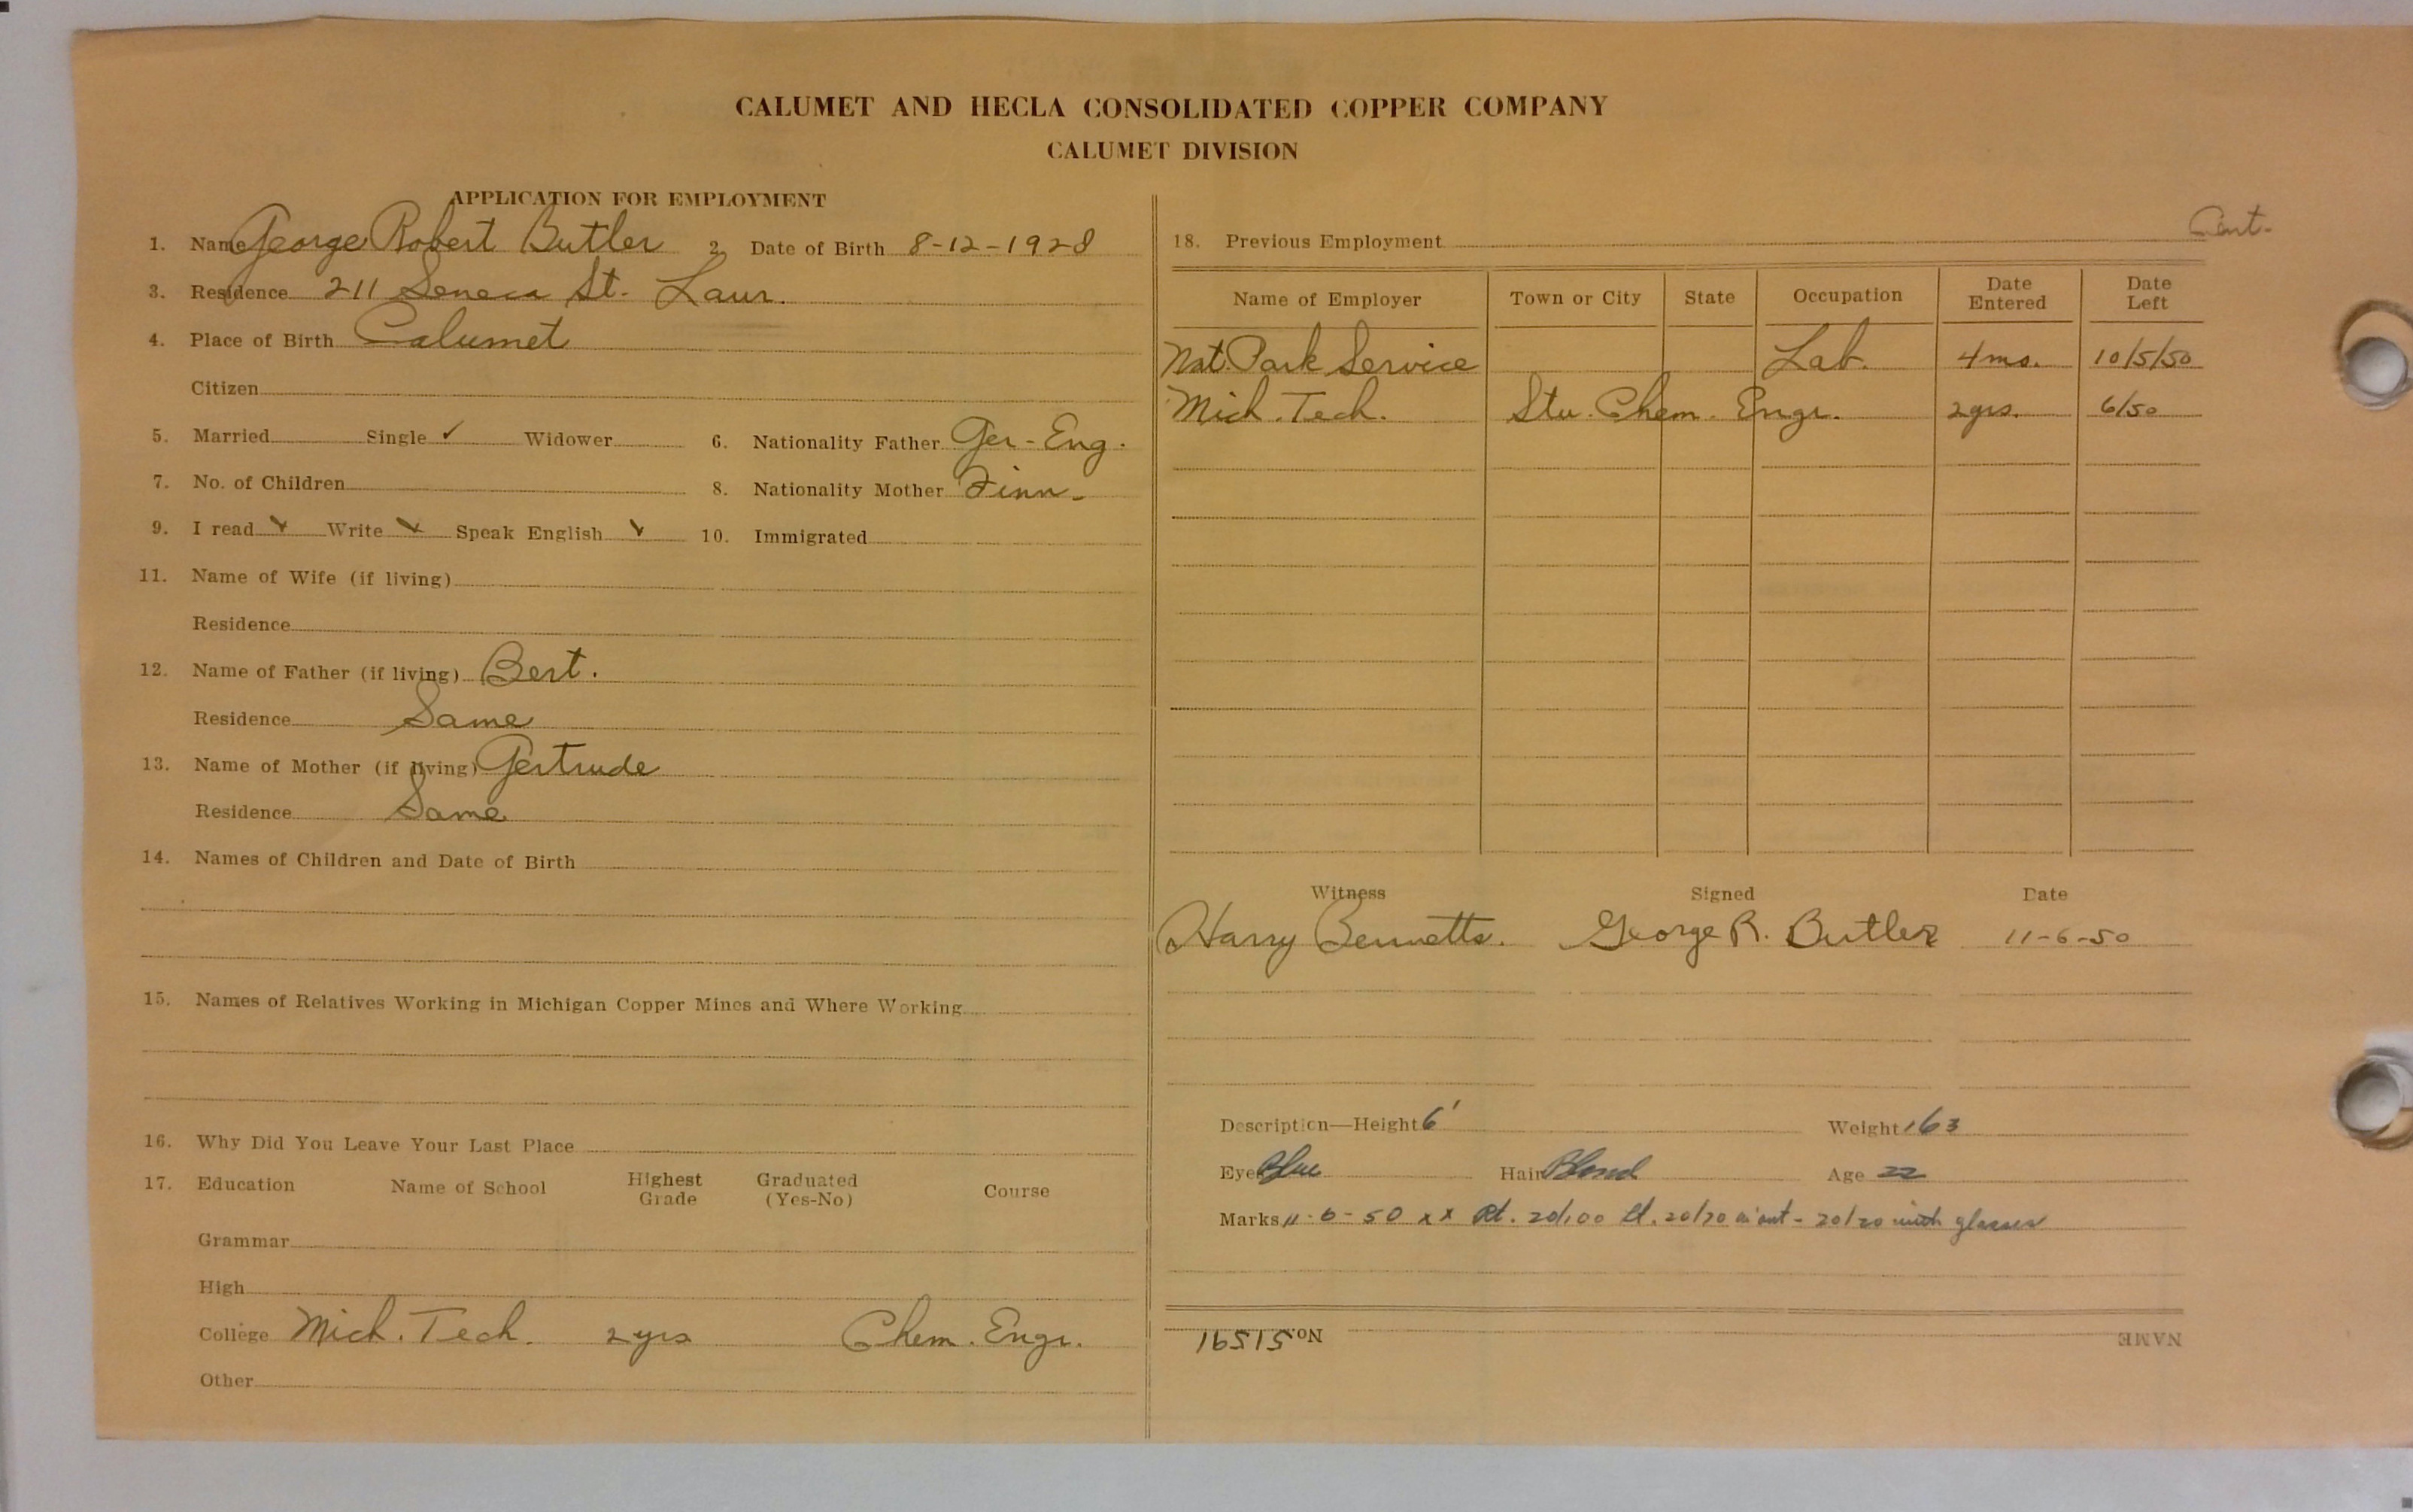 CALUMET AND HECLA CONSOLIDATED COPPER COMPANY
CALUMET DIVISION
APPLICATION FOR EMPLOYMENT
1. Name George Robert Butler 2. Date of Birth 8-12-1928
3. Residence 211 Seneca St. Laur.
4. Place of Birth Calumet
Citizen
5. Married Single ✓ Widower 6. Nationality Father Ger-Eng.
7. No. of Children 8. Nationality Mother Finn-
9. I read ✓ Write ✓ Speak English ✓ 10. Immigrated
11. Name of Wife (if living)
Residence
12. Name of Father (if living) Bert.
Residence Same
13. Name of Mother (if living) Gertrude
Residence Same
14. Names of Children and Date of Birth
15. Names of Relatives Working in Michigan Copper Mines and Where Working
16. Why Did You Leave Your Last Place
17. Education Name of School Highest Grade Graduated (Yes-No) Course
Grammar
High
College Mich. Tech. 2 yrs Chem. Engr.
Other
18. Previous Employment
Name of Employer Town or City State Occupation Date Entered Date Left
Nat. Park Service Lab. 4 mo. 10/5/50
Mich. Tech. Stu. Chem. Engr. 2 yrs. 6/50
Witness Signed Date
Harry Bennetts. George R. Butler 11-6-50
Description—Height 6' Weight 163
Eyes Blue Hair Blond Age 22
Marks 11-6-50 xx Rt. 20/100 Lt. 20/70 - 20/20 with glasses
No. 16515 NAME